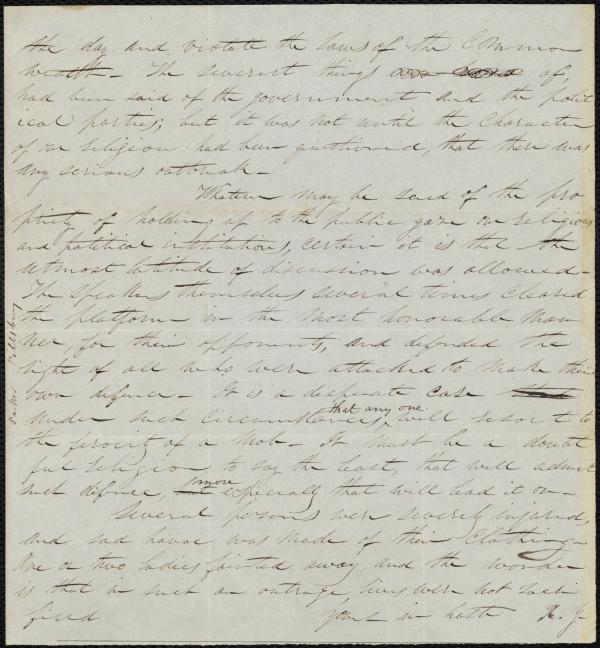 the day and violate the laws of the Common
wealth - The severest things of,
had been said of the government and the polit
ical parties; but it was not until the character
of our religion had been questioned, that there was
any serious outbreak -
Whatever may be said of the pro
priety of holding up to the public gaze our religious
and political institutions, certain it is that the
utmost latitude of discussion was allowed -
The speakers themselves several times cleared
the platform in the most honorable man
ner, for their opponents, and defended the
right of all who were attacked to make their
own defence - It is a desperate case
under such circumstances, that any one will resort to
the ferocity of a mob - It must be a doubt
ful religion to say the least, that will admit
such defence, more especially that will lead it on -
Several persons were severely injured,
and sad havoc was made of their clothing -
One or two ladies fainted away, and the wonder
is that in such an outrage, lives were not sacri
ficed
Yours in haste
Parker Pillsbury